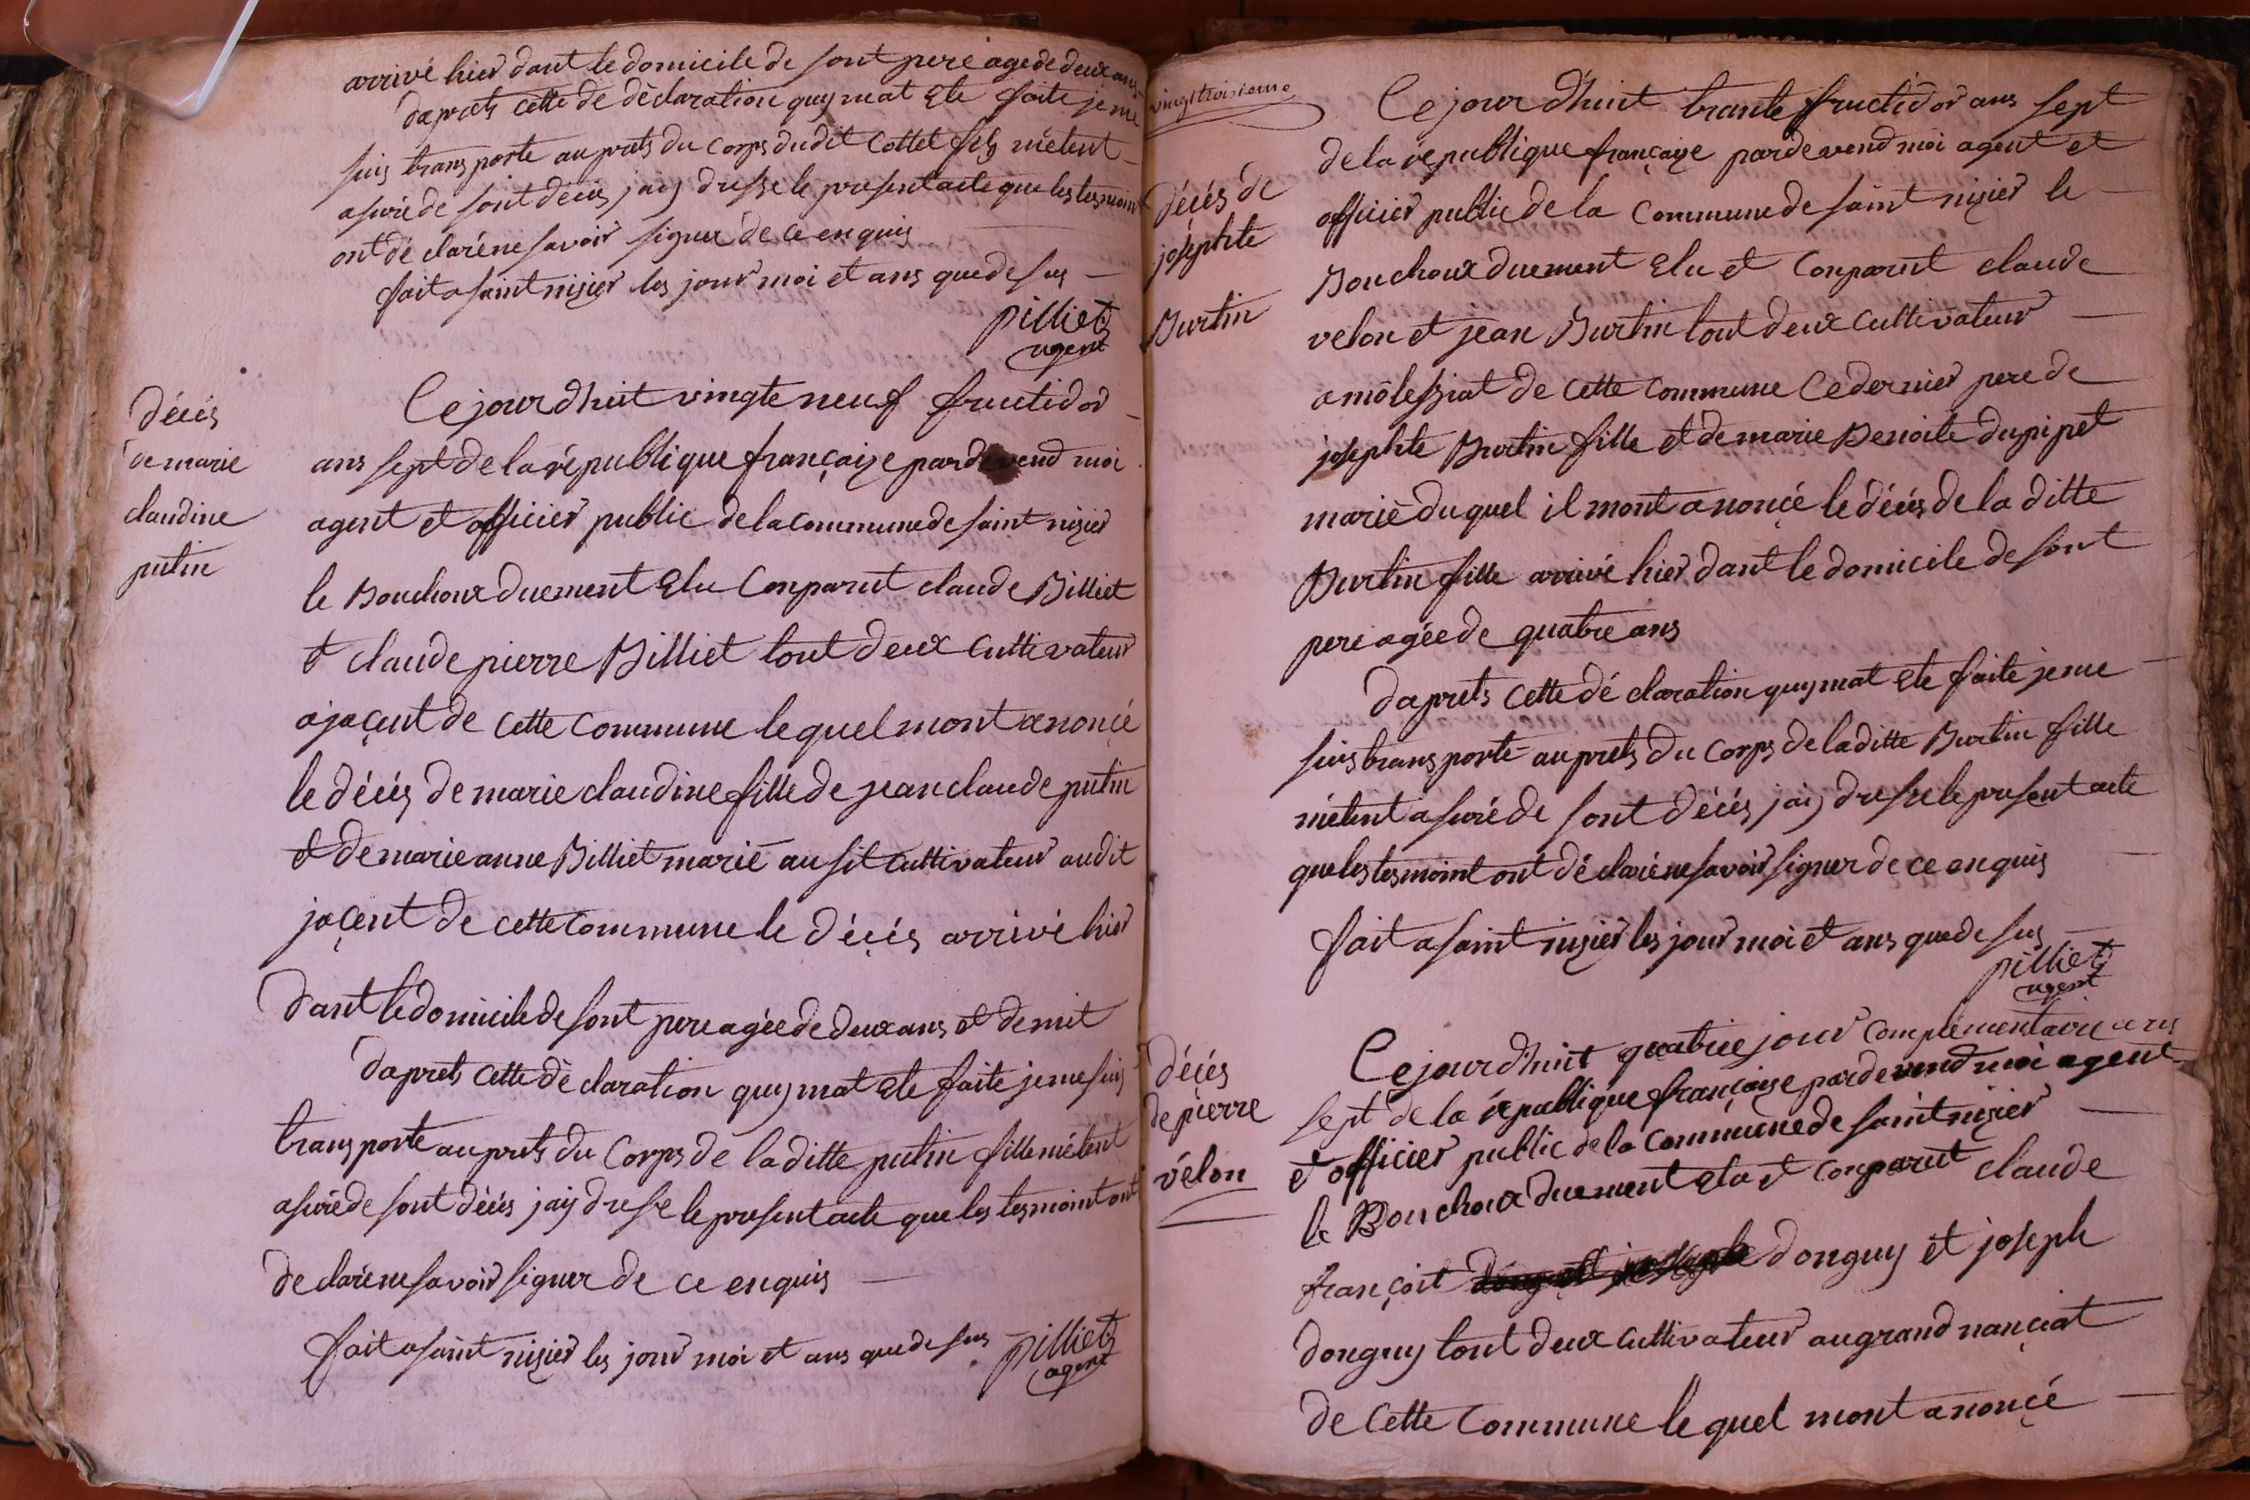 arrivé hier dant le domicile de sont pere agé de deux ans
daprets cette de déclaration quy mat ete faite je me
suis transporte auprets du corps dudit Cottet fils métent
asuré de sont décés jaij dresse le present acte que les tesmoint
ont dé claré ne savoir signer de ce enquis
fait a saint nizier les jour moi et ans que de sus
pilliet
agent
décés
de marie
claudine
putin
Ce jourdhuit vingte neuf fructidor
ans sept de la république françaize pardevend moi
agent et officier public de la commune de saint nizier
le Bouchoux duement elu Conparut claude Billiet
et claude pierre Billiet tout deux cultivateur
a jaçent de cette commune le quel mont anonçé
le déçés de marie claudine fille de jean claude putin
et de marie anne Billiet marié ausit cultivateur audit
jaçent de cette commune le déçés arrivé hier
dant le domicile de sont pere agée de deux ans et demit
daprets cette dé claration quy mat ete faite je me suis
transporte auprets du Corps de la ditte putin fille métent
asuré de sont décés jaij dresse le present acte que les tesmoint ont
de claré ne savoir signer de ce enquis
fait a saint nizier les jour moi et ans que de sus
pilliet
agent
vingttroisieme
déçés de
josephte
Burtin
Ce jour dhuit trante fructidor ans sept
de la république françaize pardevend moi agent et
officier public de la Commune de saint nizier le
Bouchoux duement elu et Conparut claude
velon et jean Burtin tout deux cultivateur
a molessiat de cette commune Ce dernier pere de
josephte Burtin fille et de marie Benoite dupipet
marié du quel il mont anonçé le déçés de la ditte
Burtin fille arrivé hier dant le domicile de sont
pere agée de quatre ans
daprets cette dé claration quy mat ete faite je me
suis transporte auprets du corps de la ditte Burtin fille
métent asuré de sont déçés jaij dresse le present acte
que les tesmoint ont dé claré ne savoir signer de ce enquis
fait a saint nizier les jour moi et ans que de sus
pilliet
agent
déçés
de pierre
vélon
Ce jourdhuit quatrie jour complementaire ans
sept de la république françaize pardevend moi agent
et officier public de la Commune de saint nizier
le Bouchoux duement elu et conparut claude
françoit donguy et joseph
donguy tout deux cultivateur au grand nançiat
de cette Commune le quel mont anonçé